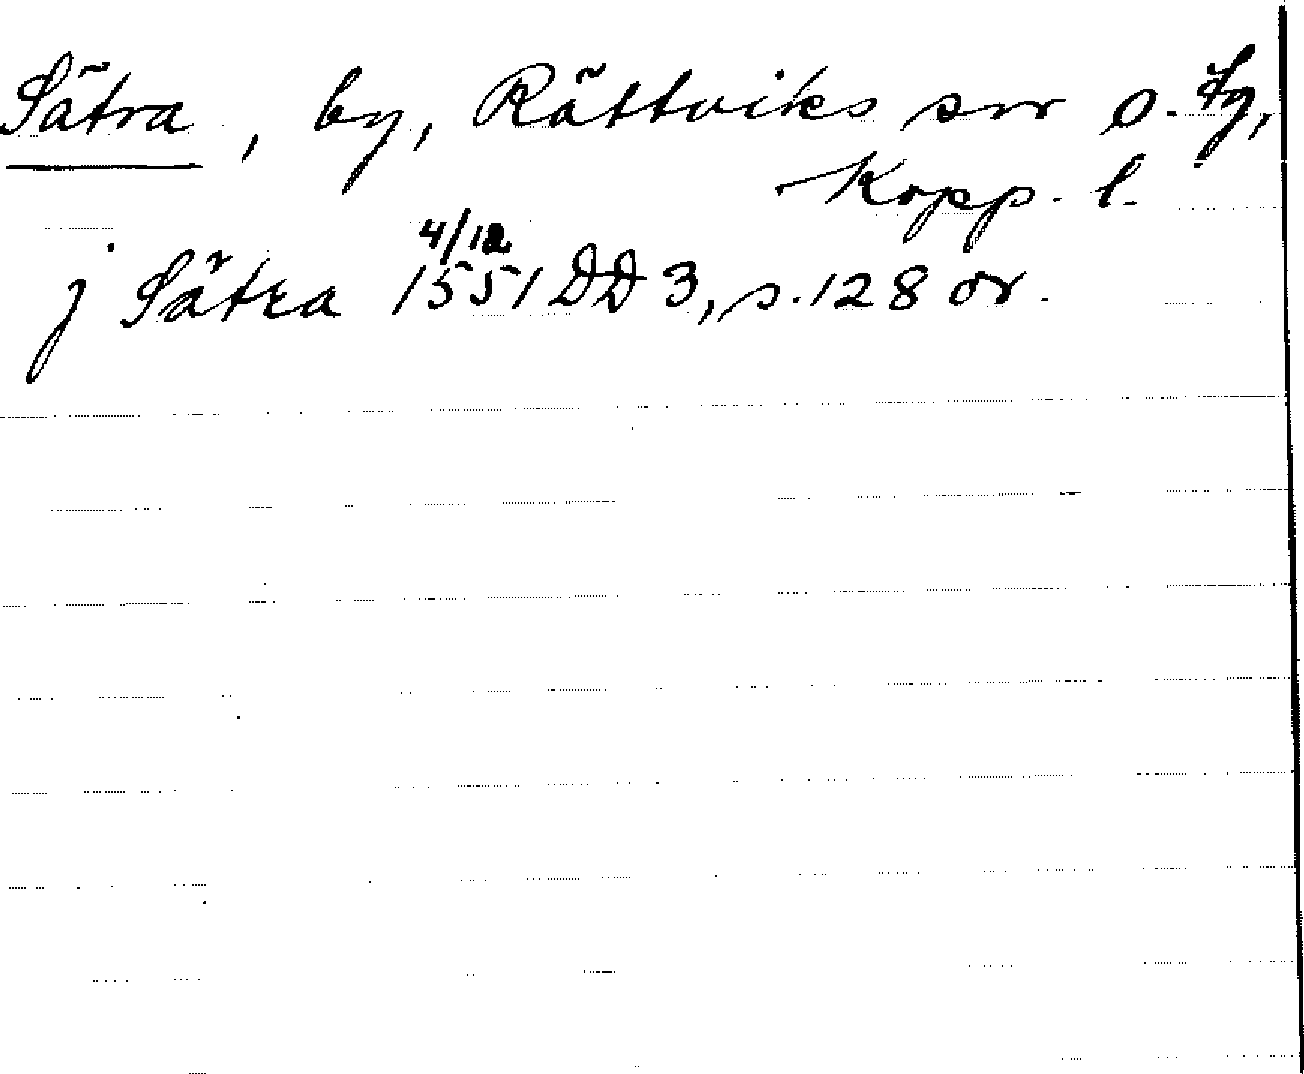 Sätra, by, Rättviks sn o. tg,
Kopp. l.
j Sätra 4/12 1551 DD 3, s. 128 or.